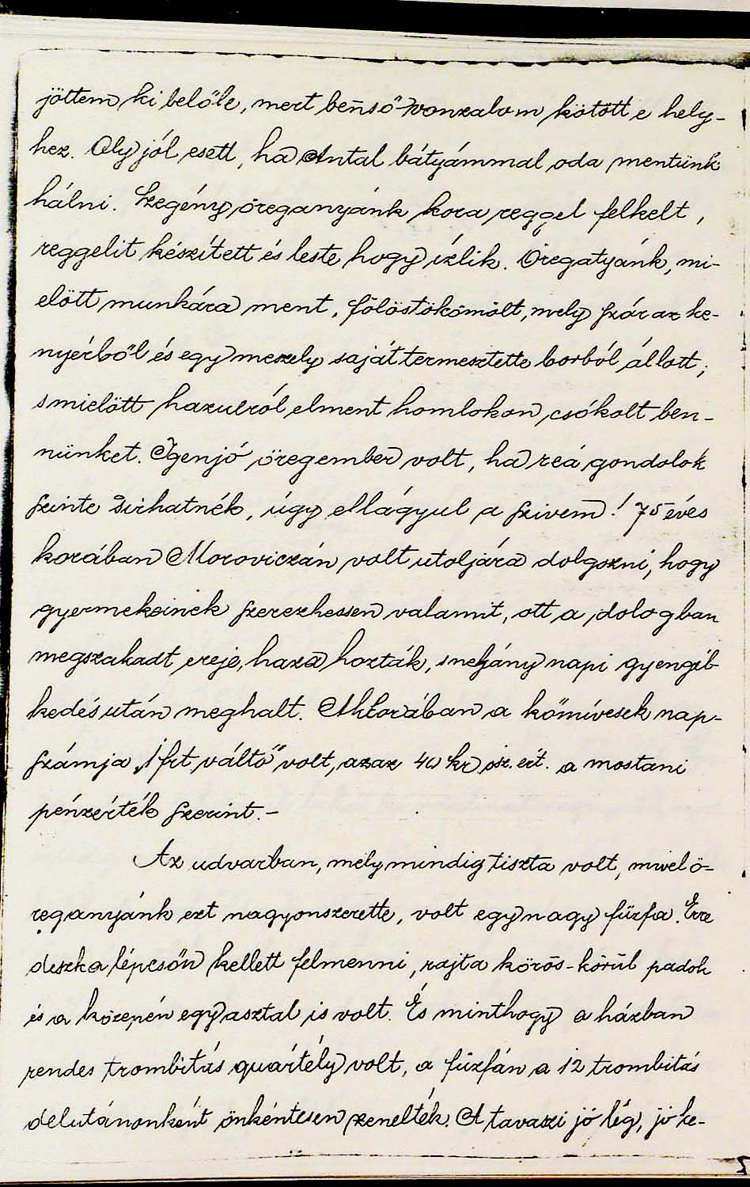 jöttem ki belőle, mert bensö vonzalom kötött e hely-
hez. Oly jól esett, ha Antal bátyámmal oda mentünk
hálni. Szegény öreganyánk kora reggel felkelt,
reggelit készített és leste hogy ízlik. Öregatyánk, mi-
elött munkára ment, fölöstökömölt, mely száraz ke-
nyérből és egy meszely saját termesztette borból állott,
s mielött hazulról elment homlokon csókolt ben-
nünket. Igen jó öregember volt, ha reá gondolok
szinte sirhatnék, úgy ellágyul a szivem! 75 éves
korában Moroviczán volt utoljára dolgozni, hogy
gyermekeinek szerezhessen valamit, ott a dologban
megszakadt ereje, haza hozták, s nehány napi gyengél-
kedés után meghalt. Akkorában a kőmívesek nap-
számja "1 frt váltó" volt, azaz 40 kr ósz. ért. a mostani
pénzérték szerint.-
Az udvarban, mely mindig tiszta volt, mivel ö-
reganyánk ezt nagyon szerette, volt egy nagy fűzfa. Erre
deszka lépcsőn kellett felmenni, rajta körös-körül padok
és a közepén egy asztal is volt. És minthogy a házban
rendes trombitás quártély volt, a fűzfán a 12 trombitás
delutánonként önkéntesen zenélték. A tavaszi jó lég, jó ke-